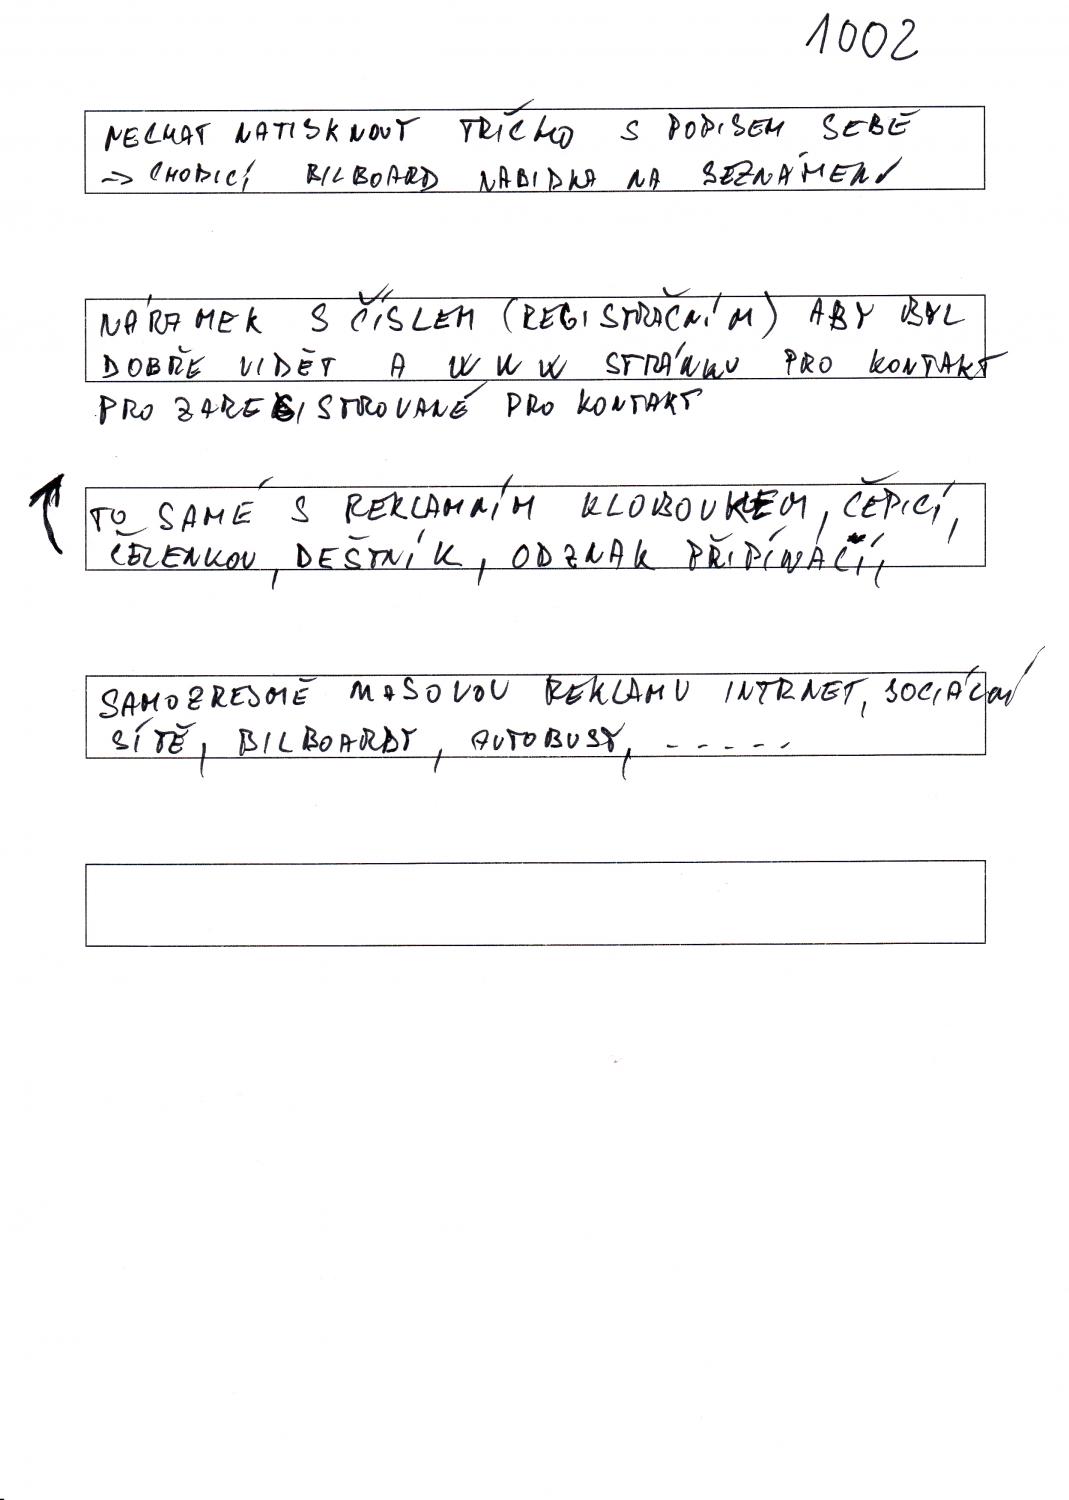 1002
NECHAT NATISKNOUT TRIČKO S POPISEM SEBE
→ CHODICÍ BILBOARD NABIDKA NA SEZNÁMENÍ
NÁRAMEK S ČÍSLEM (REGISTRAČNÍM) ABY BYL
DOBŘE VIDĚT A WWW STRÁNKU PRO KONTAKT
PRO ZAREGISTROVANÉ PRO KONTAKT
↑ TO SAMÉ S REKLAMNÍM KLOBOUKEM, ČEPICÍ,
ČELENKOU, DEŠTNÍK, ODZNAK PŘIPÍNACÍ,
SAMOZREJMĚ MASOVOU REKLAMU INTRNET, SOCIÁLNÍ
SÍTĚ, BILBOARDY, AUTOBUSY, - - - - -